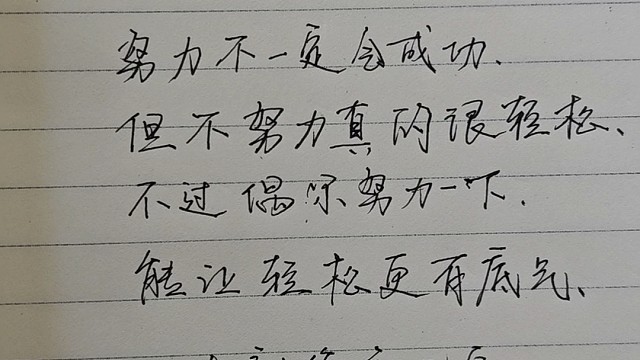 努力不一定会成功、
但不努力真的很轻松、
不过偶尔努力一下、
能让轻松更有底气、